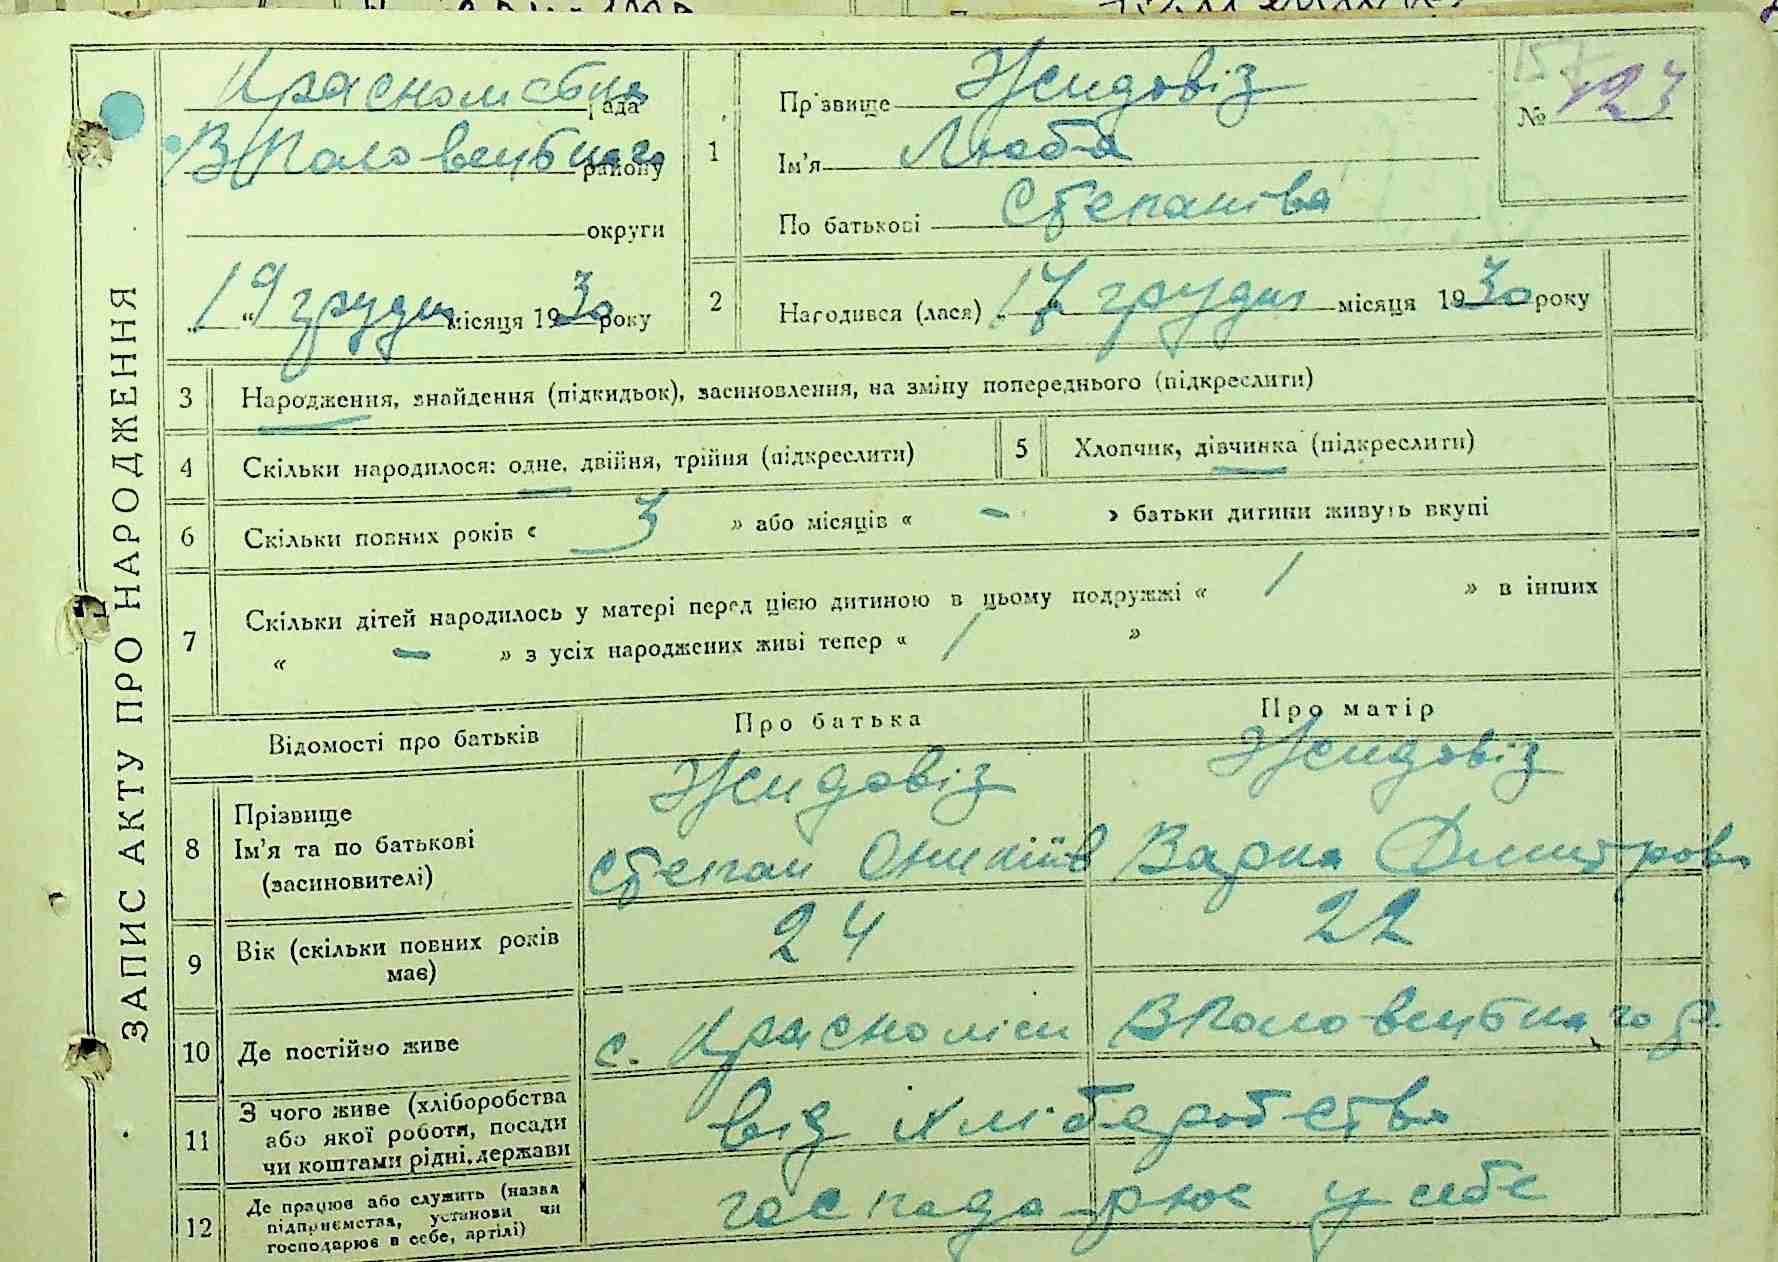 ЗАПИС АКТУ ПРО НАРОДЖЕННЯ
рада
В Половецького району
округи
" 19 " грудн місяця 1930 року
1
Прізвище Жидовіз
Ім'я Люба
По батькові Степанівна
№ 123
157
2
Народився (лася) " 17 " грудн місяця 1930 року
3 Народження, знайдення (підкидьок), засиновлення, на зміну попереднього (підкреслити)
4 Скільки народилося: одне, двійня, трійня (підкреслити)
5 Хлопчик, дівчинка (підкреслити)
6 Скільки повних років « 3 » або місяців « - » батьки дитини живуть вкупі
7 Скільки дітей народилось у матері перед цією дитиною в цьому подружжі « 1 » в інших
« - » з усіх народжених живі тепер « 1 »
Відомості про батьків
Про батька
Про матір
8 Прізвище
Ім'я та по батькові
(засиновителі)
Жидовіз
Степан
Жидовіз
Варка Дмитрова
9 Вік (скільки повних років
має)
24
22
10 Де постійно живе
с. Красноліси
11 З чого живе (хліборобства
або якої роботи, посади
чи коштами рідні, держави
від хліборобства
12 Де працює або служить (назва
підприємства, установи чи
господарює в себе, артілі)
господарює у себе